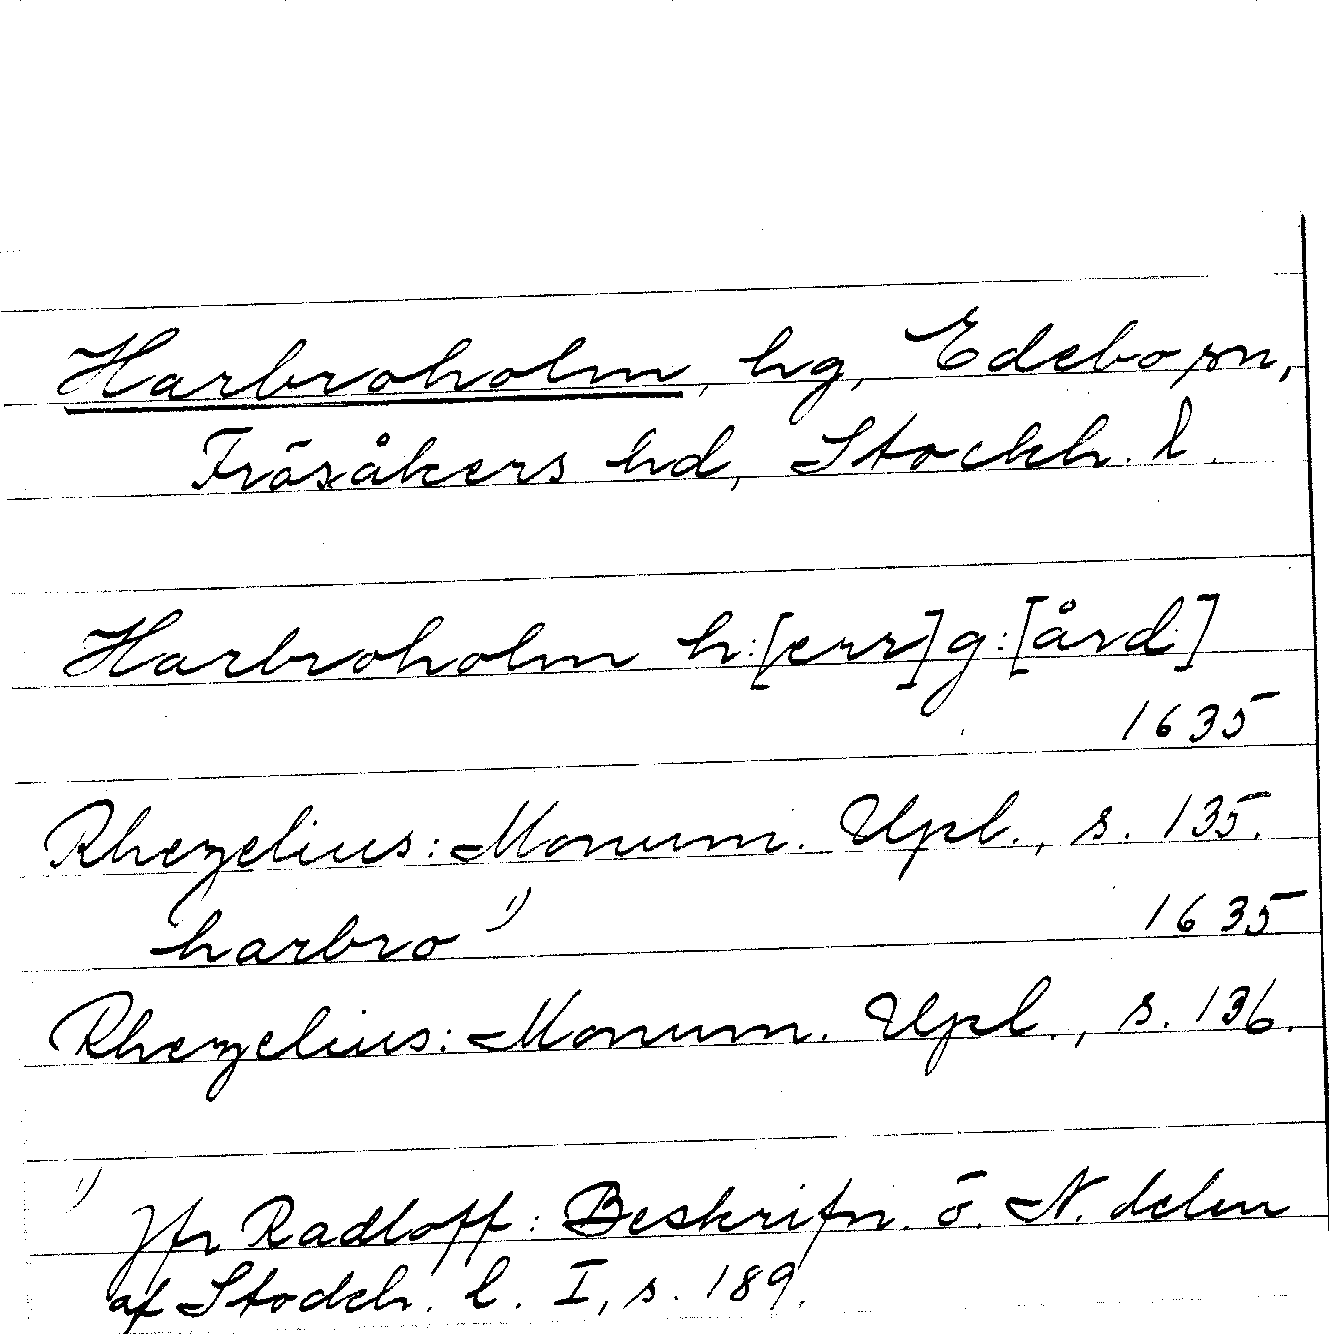 Harbroholm, hg, Edebo sn,
Frösåkers hd, Stockh. l.
Harbroholm h:[err]g:[ård]
1635
Rhezelius: Monum. Upl., s. 135.
harbro 1) 1635
Rhezelius: Monum. Upl., s. 136.
1) Jfr Radloff: Beskrifn. ö. N. delen
af Stockh. l. I, s. 189.